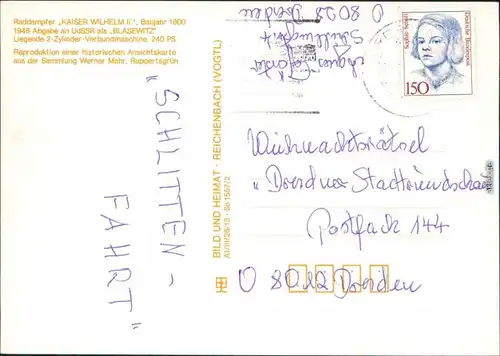 Raddampfer „KAISER WILHELM II.", Baujahr 1900
1946 Abgabe an UdSSR als „BLASEWITZ"
Liegende 2-Zylinder-Verbundmaschine, 240 PS
Reproduktion einer historischen Ansichtskarte
aus der Sammlung Werner Mahr, Ruppertsgrün
"SCHLITTEN-
FAHRT"
BILD UND HEIMAT · REICHENBACH (VOGTL)
O 8020 Dresden
Sophie Scholl
Deutsche Bundespost
150
Weihnachtsrätsel
"Dresdner Stadtrundschau
Postfach 144
O 8012 Dresden